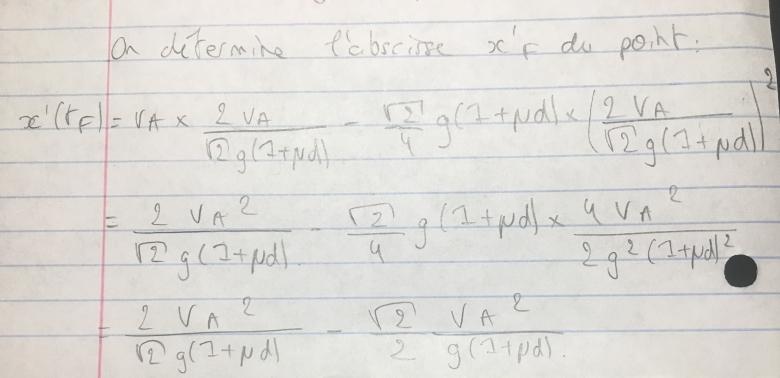 On détermine l'abscisse x'F du point :
x'(tF) = VA × 2 VA / √2 g(1+μd) - √2/4 g(1+μd) × (2 VA / √2 g(1+μd))²
= 2 VA² / √2 g(1+μd) - √2/4 g(1+μd) × 4 VA² / 2 g² (1+μd)²
= 2 VA² / √2 g(1+μd) - √2/2 VA² / g(1+μd).